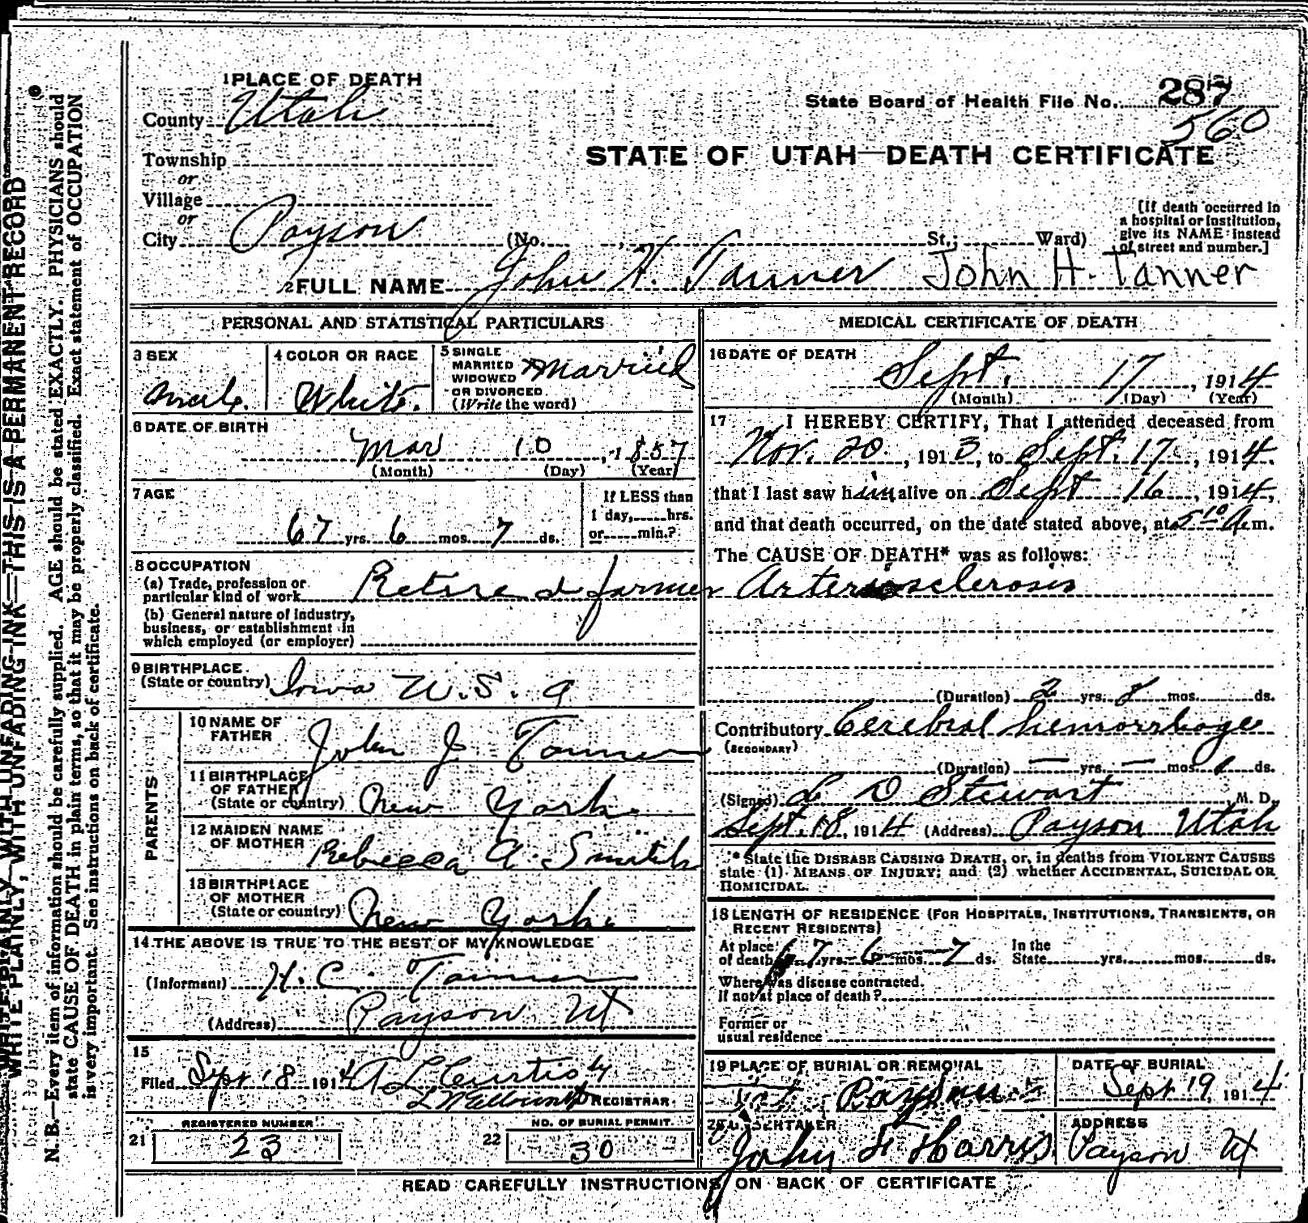 WRITE PLAINLY, WITH UNFADING INK—THIS IS A PERMANENT RECORD
N. B.—Every item of information should be carefully supplied. AGE should be stated EXACTLY. PHYSICIANS should
state CAUSE OF DEATH in plain terms, so that it may be properly classified. Exact statement of OCCUPATION
is very important. See instructions on back of certificate.
1 PLACE OF DEATH
County Utah
Township
or
Village
or
City Payson (No. St.; Ward)
State Board of Health File No. 287
560
STATE OF UTAH—DEATH CERTIFICATE
[If death occurred in
a hospital or institution,
give its NAME instead
of street and number.]
2 FULL NAME John H. Tanner John H. Tanner
PERSONAL AND STATISTICAL PARTICULARS
3 SEX
Male.
4 COLOR OR RACE
White.
5 SINGLE
MARRIED
WIDOWED
OR DIVORCED
(Write the word)
Married
6 DATE OF BIRTH
Mar 10, 1857
(Month) (Day) (Year)
7 AGE
67 yrs. 6 mos. 7 ds.
If LESS than
1 day, hrs.
or min.?
8 OCCUPATION
(a) Trade, profession or
particular kind of work Retired farmer
(b) General nature of industry,
business, or establishment in
which employed (or employer)
9 BIRTHPLACE
(State or country) Iowa U. S. a
PARENTS
10 NAME OF
FATHER John J Tanner
11 BIRTHPLACE
OF FATHER
(State or country) New York
12 MAIDEN NAME
OF MOTHER Rebecca A. Smith
13 BIRTHPLACE
OF MOTHER
(State or country) New York
14 THE ABOVE IS TRUE TO THE BEST OF MY KNOWLEDGE
(Informant) H. C. Tanner
(Address) Payson Ut
15
Filed Sept 18 1914 A L Curtis
REGISTRAR
REGISTERED NUMBER
21 23
NO. OF BURIAL PERMIT
22 30
MEDICAL CERTIFICATE OF DEATH
16 DATE OF DEATH
Sept. 17, 1914
(Month) (Day) (Year)
17 I HEREBY CERTIFY, That I attended deceased from
Nov. 20, 1913, to Sept. 17, 1914,
that I last saw him alive on Sept 16, 1914,
and that death occurred, on the date stated above, at 5 10 A.m.
The CAUSE OF DEATH* was as follows:
Arteriosclerosis
(Duration) 2 yrs. 8 mos. ds.
Contributory Cerebral hemorrhage
(SECONDARY)
(Duration) — yrs. — mos. ds.
(Signed) L D Stewart M. D.
Sept. 18, 1914 (Address) Payson Utah
* State the DISEASE CAUSING DEATH, or, in deaths from VIOLENT CAUSES
state (1) MEANS OF INJURY; and (2) whether ACCIDENTAL, SUICIDAL OR
HOMICIDAL.
18 LENGTH OF RESIDENCE (FOR HOSPITALS, INSTITUTIONS, TRANSIENTS, OR
RECENT RESIDENTS)
At place
of death 67 yrs. 6 mos. 7 ds. In the
State yrs. mos. ds.
Where was disease contracted.
If not at place of death?
Former or
usual residence
19 PLACE OF BURIAL OR REMOVAL
Payson
DATE OF BURIAL
Sept 19 1914
20 UNDERTAKER
John F Harris
ADDRESS
Payson Ut
READ CAREFULLY INSTRUCTIONS ON BACK OF CERTIFICATE